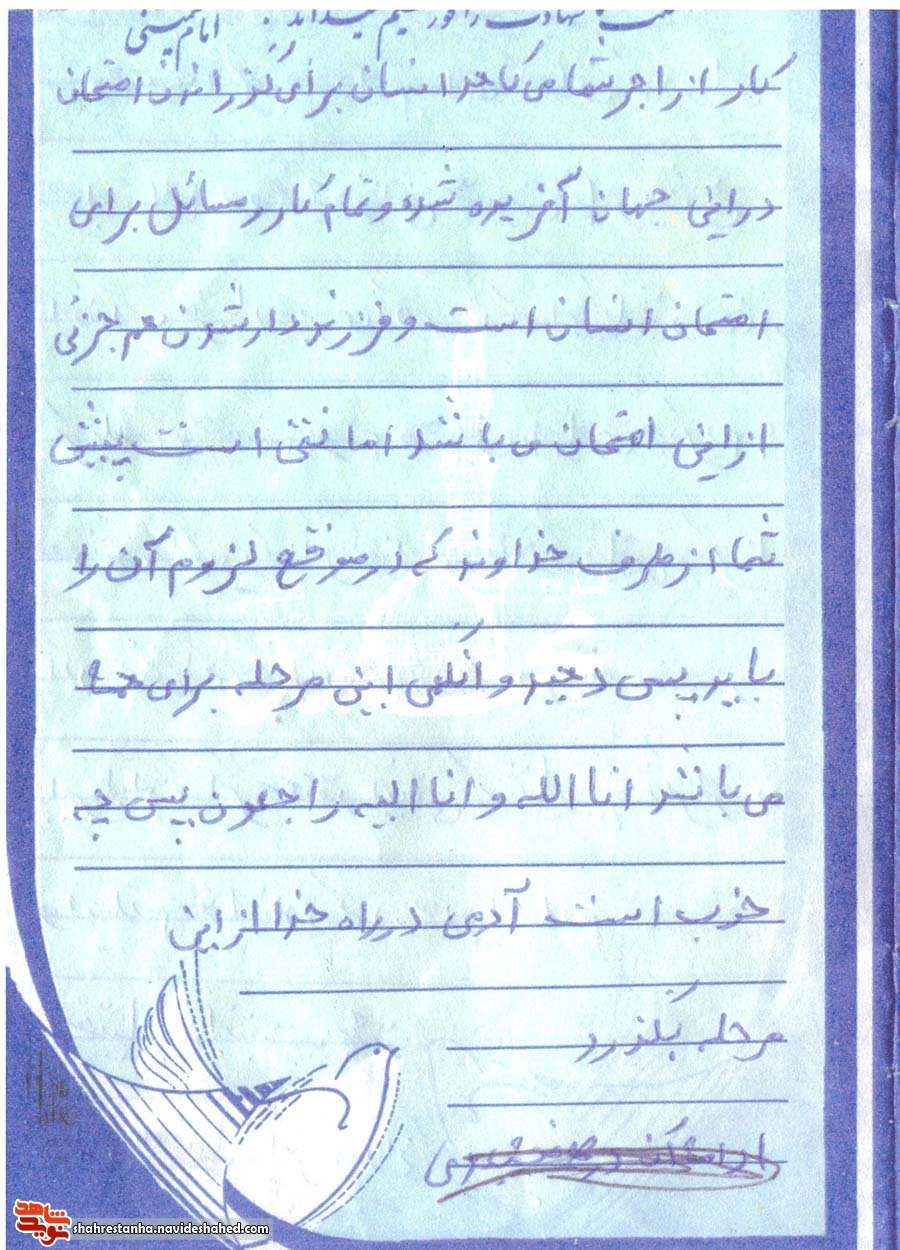 امام خمینی
کار از اجر شما می کاهد انسان برای گذراندن امتحان
در این جهان آفریده شده و تمام کار و مسائل برای
امتحان انسان است و فرزند دار شدن هم جزئی
از این امتحان می باشد امانتی است پیش
شما از طرف خداوند که در موقع لزوم آن را
باید پس دهید و این مرحله برای همه
می باشد انا الله و انا الیه راجعون پس چه
خوب است آدمی در راه خدا از این
مرحله بگذرد
شاهد
نوید
shahrestanha.navideshahed.com